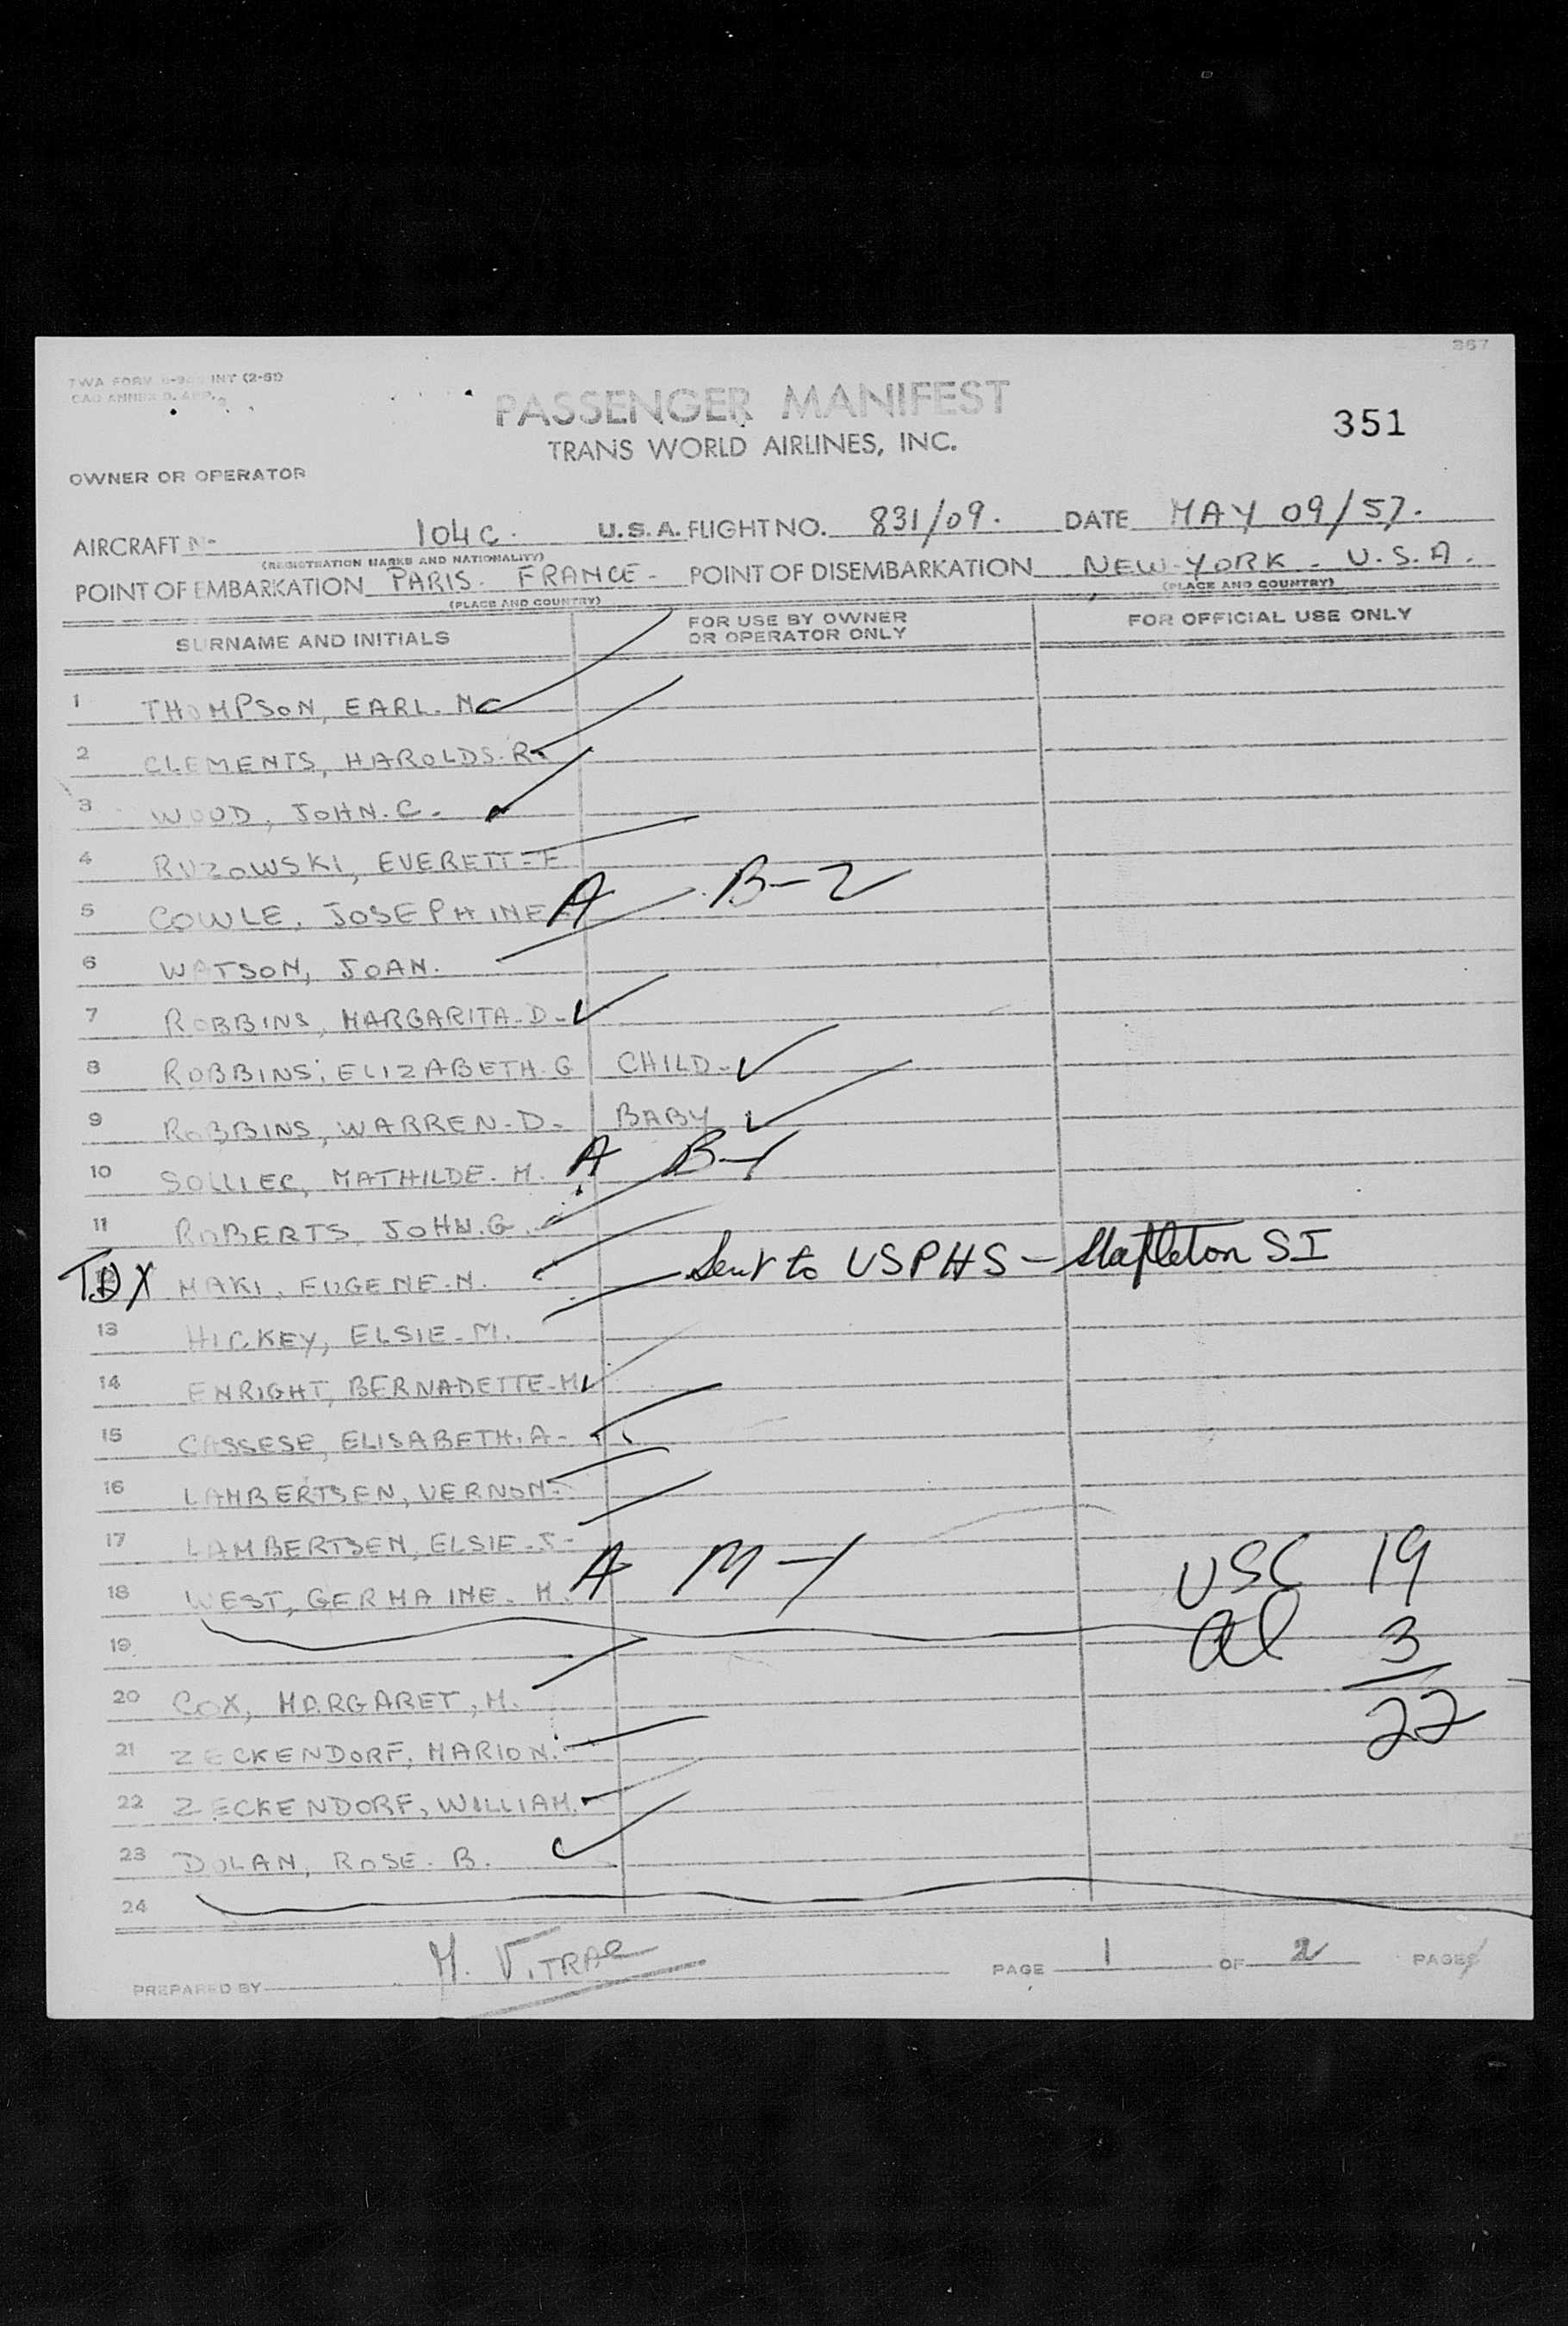 367
TWA FORM INT (2-51)
PASSENGER MANIFEST
351
TRANS WORLD AIRLINES, INC.
OWNER OR OPERATOR
AIRCRAFT N- 104C. U.S.A. FLIGHT NO. 831/09. DATE MAY 09/57.
(REGISTRATION MARKS AND NATIONALITY)
POINT OF EMBARKATION PARIS. FRANCE- POINT OF DISEMBARKATION NEW-YORK - U.S.A.
(PLACE AND COUNTRY) (PLACE AND COUNTRY)
SURNAME AND INITIALS FOR USE BY OWNER OR OPERATOR ONLY FOR OFFICIAL USE ONLY
1 THOMPSON, EARL. N
2 CLEMENTS, HAROLDS. R-
3 WOOD, JOHN. C.
4 RUZOWSKI, EVERETT-F
5 COWLE, JOSEPHINE A B-2
6 WATSON, JOAN.
7 ROBBINS, MARGARITA-D- ✓
8 ROBBINS, ELIZABETH. G CHILD- ✓
9 ROBBINS, WARREN-D- BABY ✓
10 SOLLIEC, MATHILDE. M. A B-1
11 ROBERTS, JOHN. G.
TDX MAKI, EUGENE. N. Sent to USPHS - Stapleton SI
13 HICKEY, ELSIE-M.
14 ENRIGHT, BERNADETTE-M ✓
15 CASSESE, ELISABETH. A-
16 LAMBERTSEN, VERNON-
17 LAMBERTSEN, ELSIE-J-
18 WEST, GERMAINE. M. A M-1 USC 19
19 al 3
20 COX, MARGARET, M. 22
21 ZECKENDORF, MARION.
22 ZECKENDORF, WILLIAM.
23 DOLAN, ROSE. B. ✓
24
PREPARED BY M. VITRAC PAGE 1 OF 2 PAGES